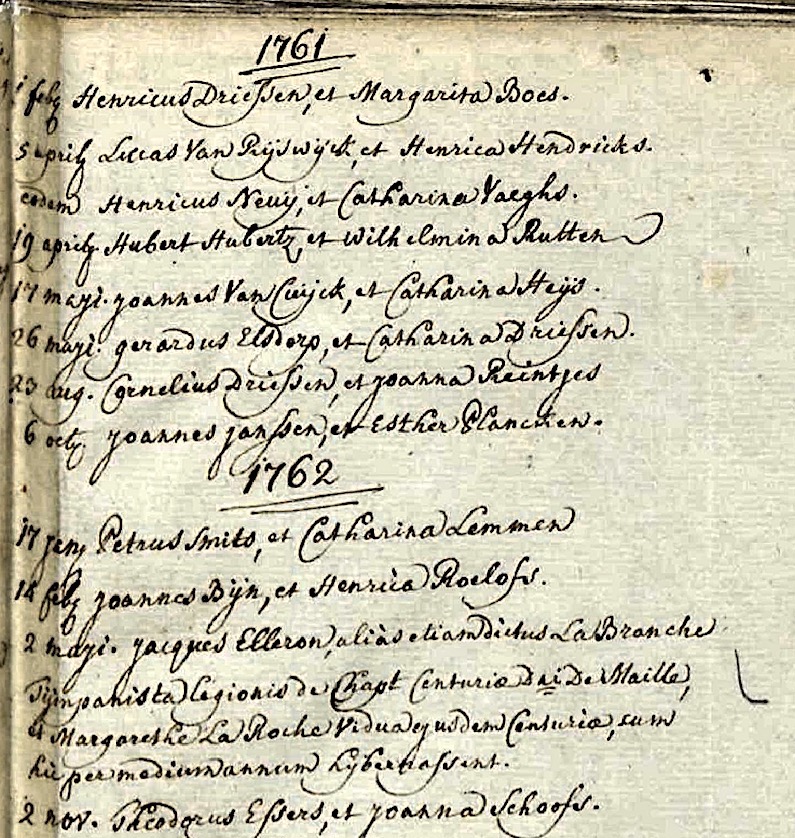 1761
1 feb. Henricus Driessen, et Margarita Boes.
5 april Lucas Van Rijswijck, et Henrica Hendricks.
eodem Henricus Neuij, et Catharina Vaeghs.
19 april Hubert Hubertz, et Wilhelmina Rutten
17 maji. Joannes Van Cuijck, et Catharina Heijs.
26 maji. gerardus Elsdorp, et Catharina Driessen.
23 aug. Cornelius Driessen, et Joanna Reintjes
6 oct. Joannes Janssen, et Esther Plancken.
1762
17 jan Petrus Smits, et Catharina Lemmen
14 feb Joannes Bijn, et Henrica Roelofs.
2 maji. Jacques Elleron, aliàs etiam dictus La Branche
Tijmpanista legionis de Chapt Centuriæ Dni De Maille,
et Margarethe La Roche Vidua ejusdem Centuriæ, cum
hic per medium annum hybernassent.
2 nov. Theodorus Essers, et Joanna Schoofs.